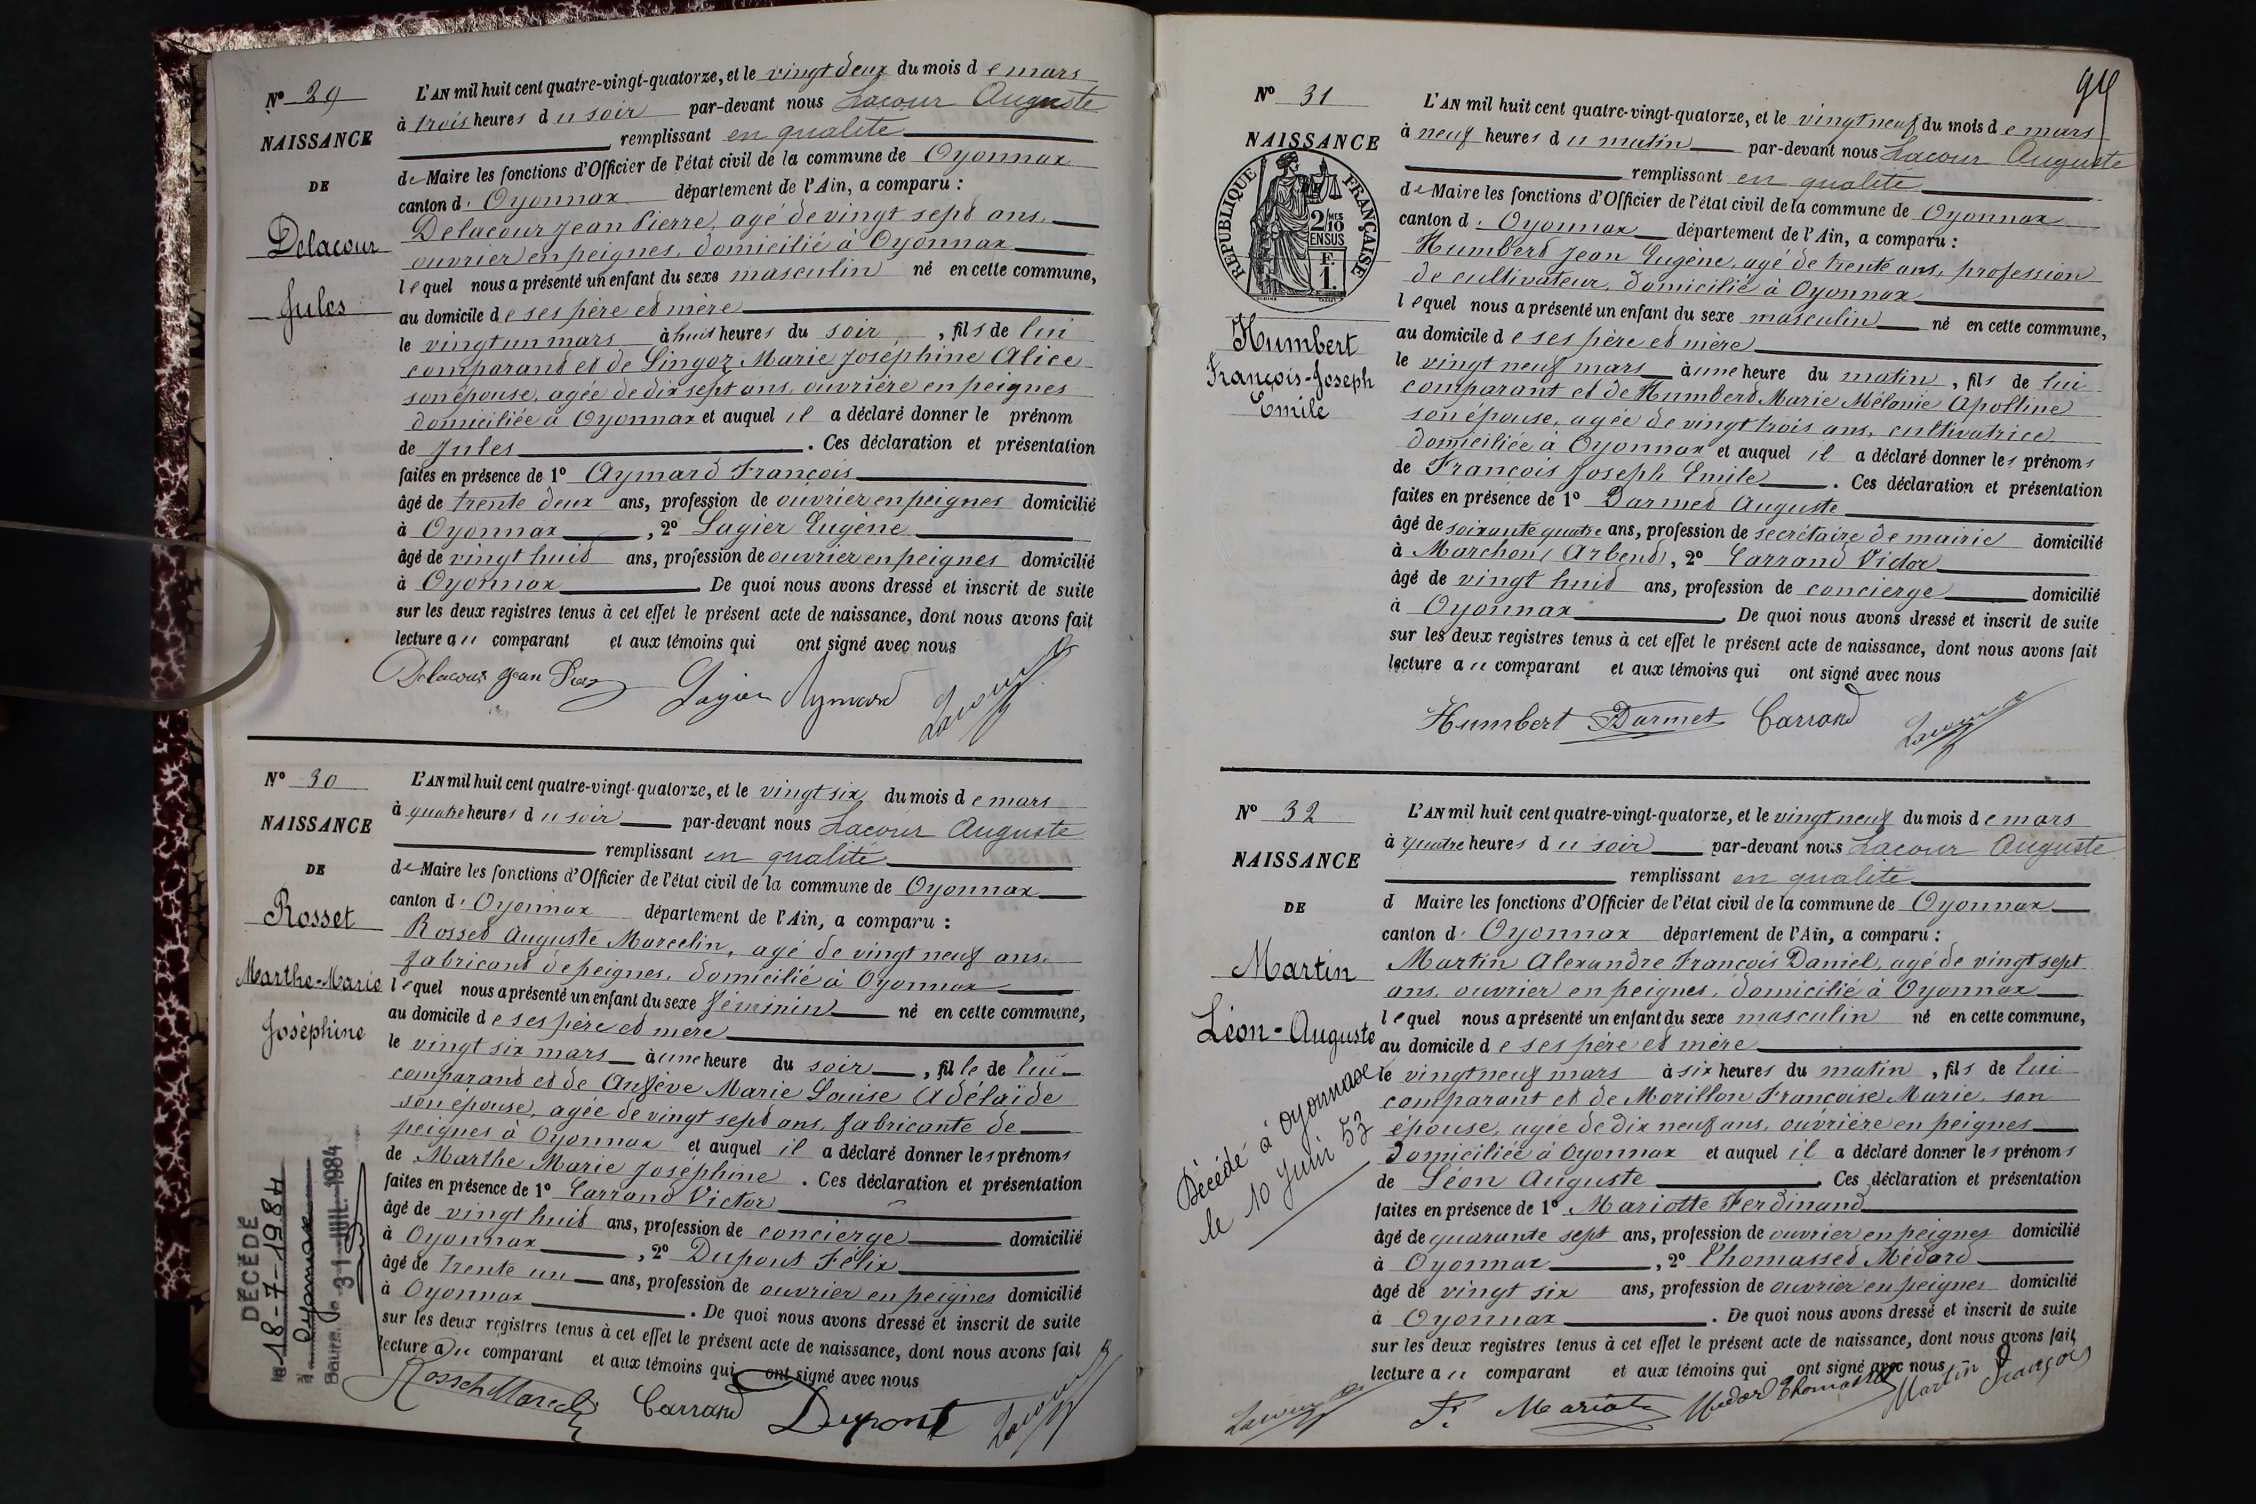 Nº 29
NAISSANCE
DE
Delacour
Jules
L'AN mil huit cent quatre-vingt-quatorze, et le vingt deux du mois de mars
à trois heures du soir par-devant nous Lacour Auguste
remplissant en qualité
de Maire les fonctions d'Officier de l'état civil de la commune de Oyonnax
canton d'Oyonnax département de l'Ain, a comparu :
Delacour Jean Pierre, agé de vingt sept ans,
ouvrier en peignes, domicilié à Oyonnax
lequel nous a présenté un enfant du sexe masculin né en cette commune,
au domicile de ses père et mère
le vingt un mars à huit heures du soir, fils de lui
comparant et de Lingoz Marie Joséphine Alice
son épouse, agée de dix sept ans, ouvrière en peignes
domiciliée à Oyonnax et auquel il a déclaré donner le prénom
de Jules. Ces déclaration et présentation
faites en présence de 1º Aymard François
âgé de trente deux ans, profession de ouvrier en peignes domicilié
à Oyonnax, 2º Lagier Eugène
âgé de vingt huit ans, profession de ouvrier en peignes domicilié
à Oyonnax De quoi nous avons dressé et inscrit de suite
sur les deux registres tenus à cet effet le présent acte de naissance, dont nous avons fait
lecture au comparant et aux témoins qui ont signé avec nous
Delacour Jean Lagier Aymard Lacour
Nº 30
NAISSANCE
DE
Rosset
Marthe-Marie
Joséphine
L'AN mil huit cent quatre-vingt-quatorze, et le vingt six du mois de mars
à quatre heures du soir par-devant nous Lacour Auguste
remplissant en qualité
de Maire les fonctions d'Officier de l'état civil de la commune de Oyonnax
canton d'Oyonnax département de l'Ain, a comparu :
Rosset Auguste Marcelin, agé de vingt neuf ans,
fabricant de peignes, domicilié à Oyonnax
lequel nous a présenté un enfant du sexe féminin né en cette commune,
au domicile de ses père et mère
le vingt six mars à une heure du soir, fille de lui
comparant et de Marie Louise Adélaïde
son épouse, agée de vingt sept ans, fabricante de
peignes à Oyonnax et auquel il a déclaré donner les prénoms
de Marthe Marie Joséphine. Ces déclaration et présentation
faites en présence de 1º Carrand Victor
âgé de vingt huit ans, profession de concierge domicilié
à Oyonnax, 2º Dupont Félix
âgé de trente un ans, profession de ouvrier en peignes domicilié
à Oyonnax. De quoi nous avons dressé et inscrit de suite
sur les deux registres tenus à cet effet le présent acte de naissance, dont nous avons fait
lecture au comparant et aux témoins qui ont signé avec nous
Carrand Dupont Lacour
DÉCÉDÉ
le 18-7-1984
à Oyonnax
31 JUIL. 1984
94
Nº 31
NAISSANCE
RÉPUBLIQUE FRANÇAISE
2/10
MES
EN SUS
F.
1.
Humbert
François-Joseph
Emile
L'AN mil huit cent quatre-vingt-quatorze, et le vingt neuf du mois de mars
à neuf heures du matin par-devant nous Lacour Auguste
remplissant en qualité
de Maire les fonctions d'Officier de l'état civil de la commune de Oyonnax
canton d'Oyonnax département de l'Ain, a comparu :
Humbert Jean Eugène, agé de trente ans, profession
de cultivateur, domicilié à Oyonnax
lequel nous a présenté un enfant du sexe masculin né en cette commune,
au domicile de ses père et mère
le vingt neuf mars à une heure du matin, fils de lui
comparant et de Humbert Marie Mélanie Apolline
son épouse, agée de vingt trois ans, cultivatrice
domiciliée à Oyonnax et auquel il a déclaré donner les prénoms
de François Joseph Emile. Ces déclaration et présentation
faites en présence de 1º Darmet Auguste
âgé de soixante quatre ans, profession de secrétaire de mairie domicilié
à Marchon (Arbent), 2º Carrand Victor
âgé de vingt huit ans, profession de concierge domicilié
à Oyonnax. De quoi nous avons dressé et inscrit de suite
sur les deux registres tenus à cet effet le présent acte de naissance, dont nous avons fait
lecture au comparant et aux témoins qui ont signé avec nous
Humbert Darmet Carrand Lacour
Nº 32
NAISSANCE
DE
Martin
Léon-Auguste
Décédé à Oyonnax
le 10 Juin 53
L'AN mil huit cent quatre-vingt-quatorze, et le vingt neuf du mois de mars
à quatre heures du soir par-devant nous Lacour Auguste
remplissant en qualité
d Maire les fonctions d'Officier de l'état civil de la commune de Oyonnax
canton d'Oyonnax département de l'Ain, a comparu :
Martin Alexandre François Daniel, agé de vingt sept
ans, ouvrier en peignes, domicilié à Oyonnax
lequel nous a présenté un enfant du sexe masculin né en cette commune,
au domicile de ses père et mère
le vingt neuf mars à six heures du matin, fils de lui
comparant et de Morillon Françoise Marie, son
épouse, agée de dix neuf ans, ouvrière en peignes
domiciliée à Oyonnax et auquel il a déclaré donner les prénoms
de Léon Auguste. Ces déclaration et présentation
faites en présence de 1º Mariotte Ferdinand
âgé de quarante sept ans, profession de ouvrier en peignes domicilié
à Oyonnax, 2º Thomasset Médard
âgé de vingt six ans, profession de ouvrier en peignes domicilié
à Oyonnax. De quoi nous avons dressé et inscrit de suite
sur les deux registres tenus à cet effet le présent acte de naissance, dont nous avons fait
lecture au comparant et aux témoins qui ont signé avec nous
Lacour F. Mariotte Médard Thomasset Martin François